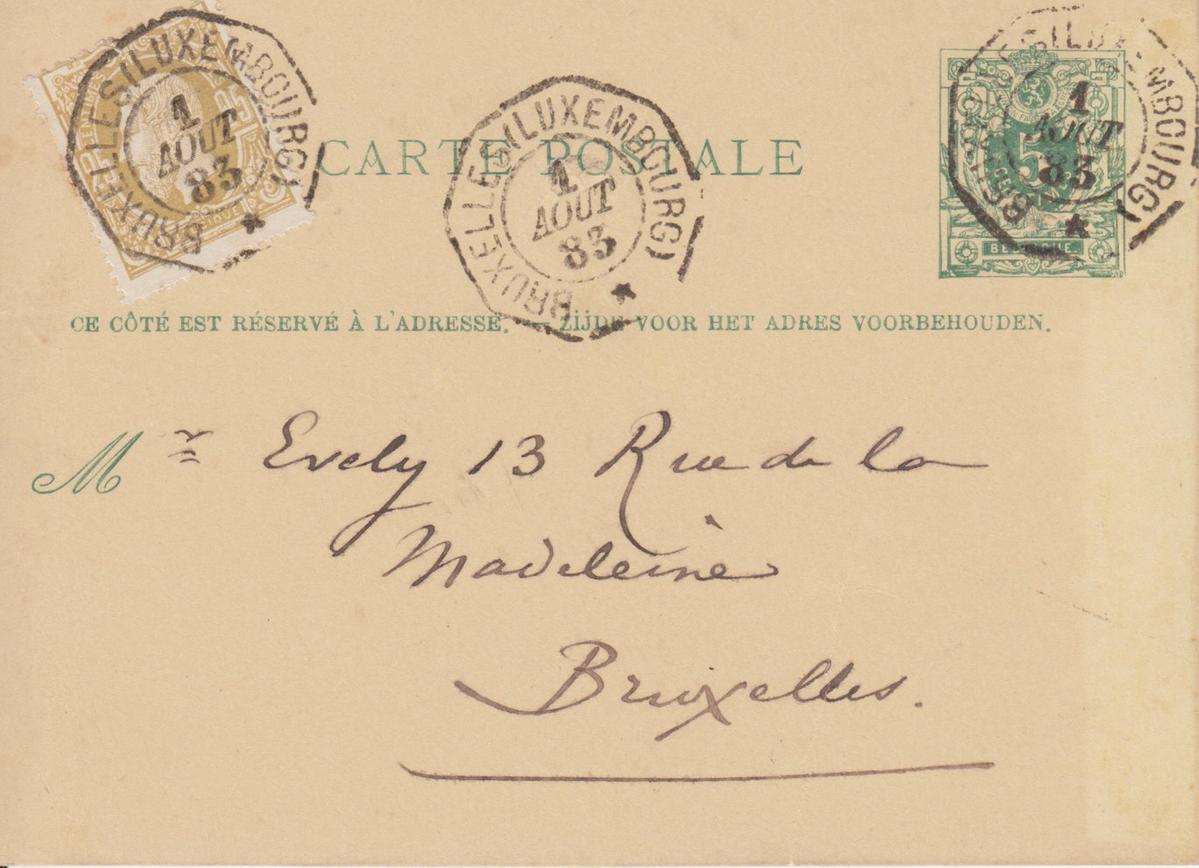 BRUXELLES (LUXEMBOURG)
1
AOUT
83
CARTE POSTALE
BRUXELLES (LUXEMBOURG)
1
AOUT
83
BRUXELLES (LUXEMBOURG)
1
AOUT
83
5
BELGIQUE.
CE CÔTÉ EST RÉSERVÉ À L'ADRESSE. — ZIJDE VOOR HET ADRES VOORBEHOUDEN.
Mr Evely 13 Rue de la
Madeleine
Bruxelles.